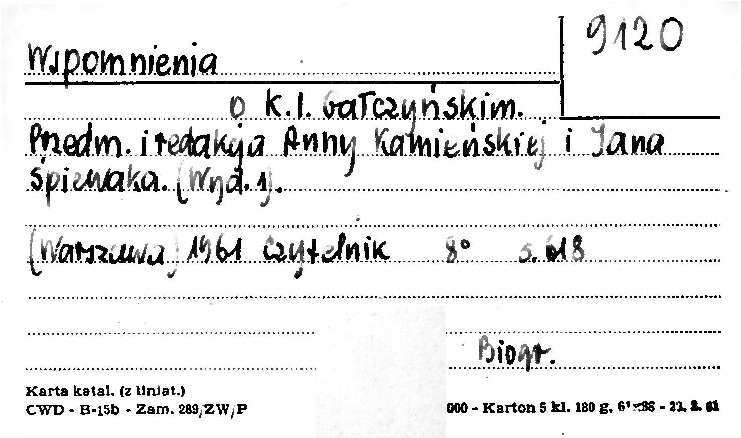 9120
Wspomnienia
o K.I. Gałczyńskim.
Przedm. i redakcja Anny Kamieńskiej i Jana
Śpiewaka. (Wyd. 1).
(Warszawa) 1961 Czytelnik 8° s. 618
Biogr.
Karta katal. (z liniat.)
CWD - B-15b - Zam. 289/ZW/P
000 - Karton 5 kl. 180 g.